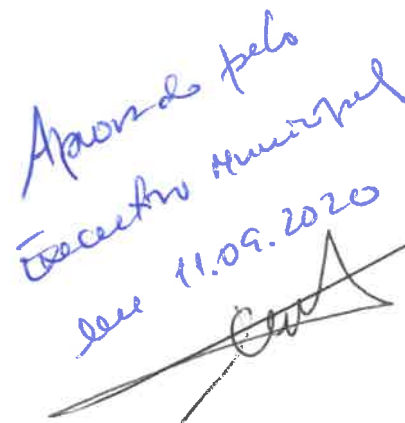 Aprovado pelo
Executivo Municipal
em 11.09.2020